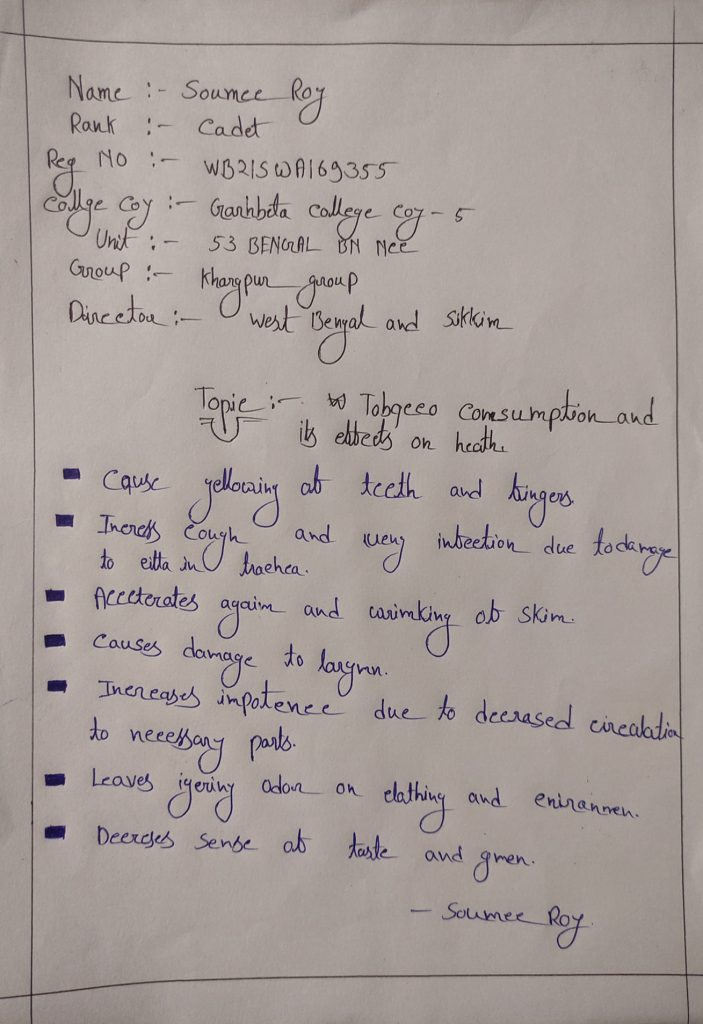 Name :- Soumee Roy
Rank :- Cadet
Reg No :- WB21SWA169355
Collge Coy :- Garhbeta College Coy - 5
Unit :- 53 BENGAL BN Ncc
Group :- Khargpur group
Director :- West Bengal and Sikkim
Topic :- Tobacco Comsumption and
its effects on heath.
Cause yellowing of teeth and fingers
Incress Cough and infection due to damage
to in trachea.
Accelerates agaim and of skim.
Causes damage to
Increases impotence due to decrased circulation
to necessary parts.
Leaves odor on clathing and
Decreses sense of taste and
- Soumee Roy.